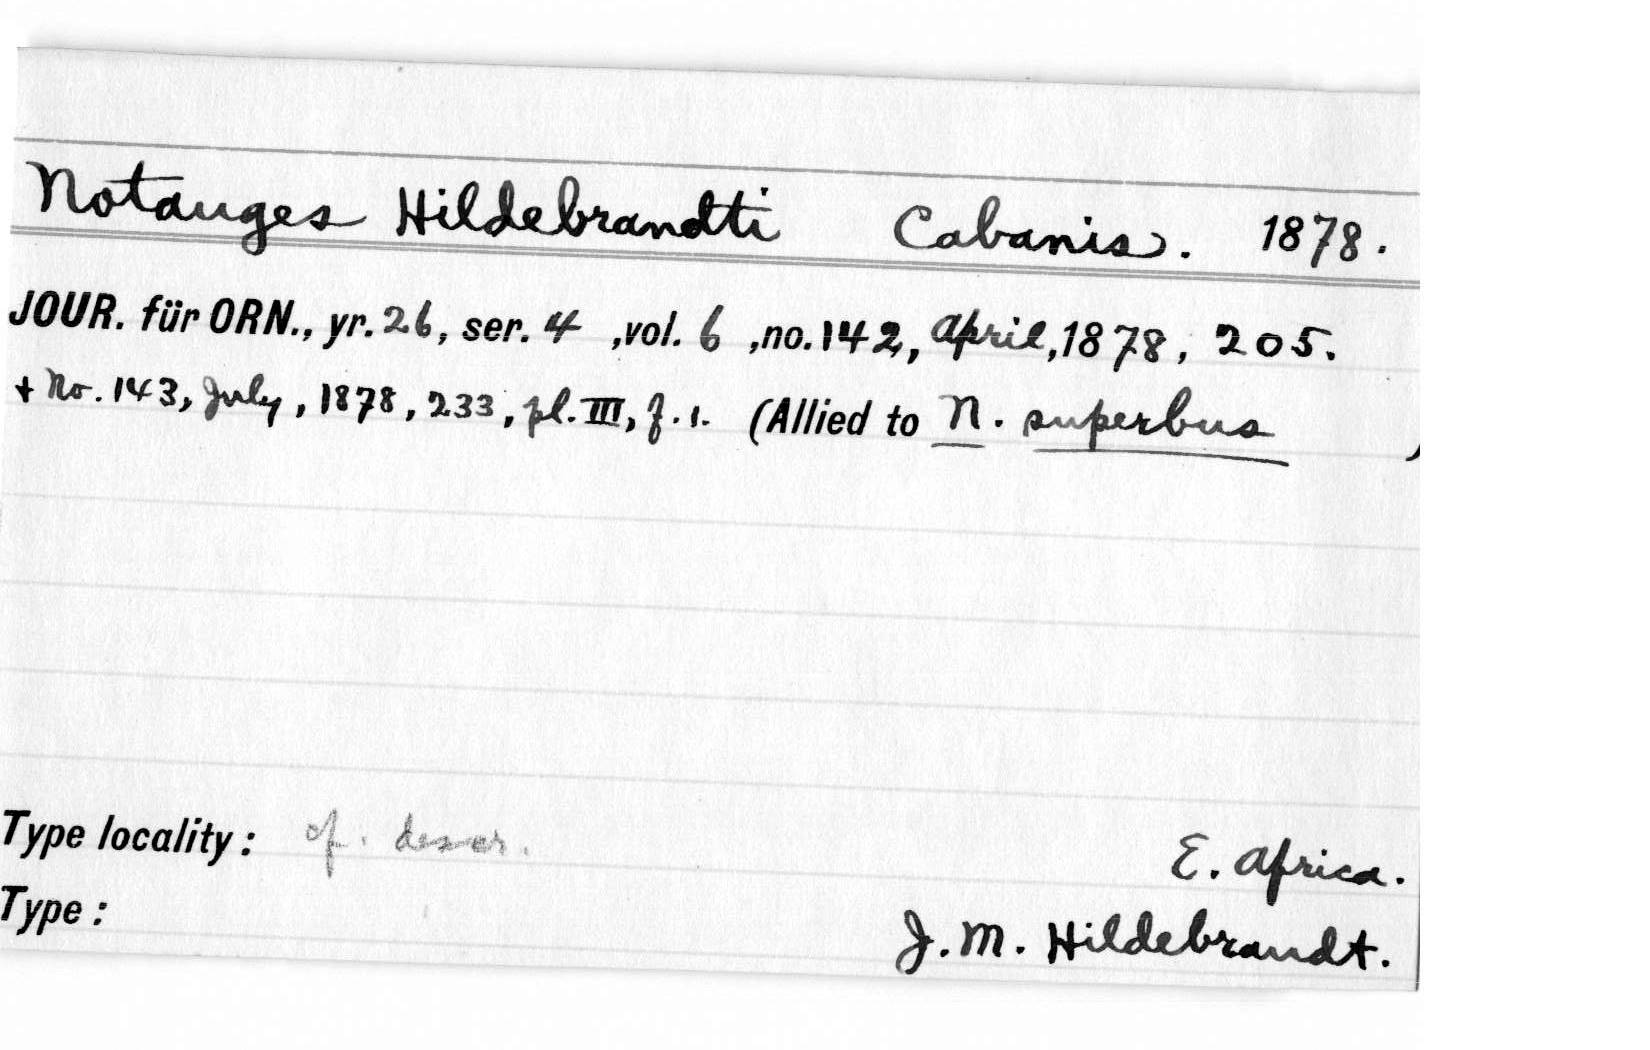 Notauges Hildebrandti Cabanis. 1878.
JOUR. für ORN., yr. 26, ser. 4 ,vol. 6 ,no. 142, April, 1878, 205.
+ No. 143, July, 1878, 233, pl. III, f. 1. (Allied to N. superbus )
Type locality: of. descr. E. Africa.
Type: J. M. Hildebrandt.